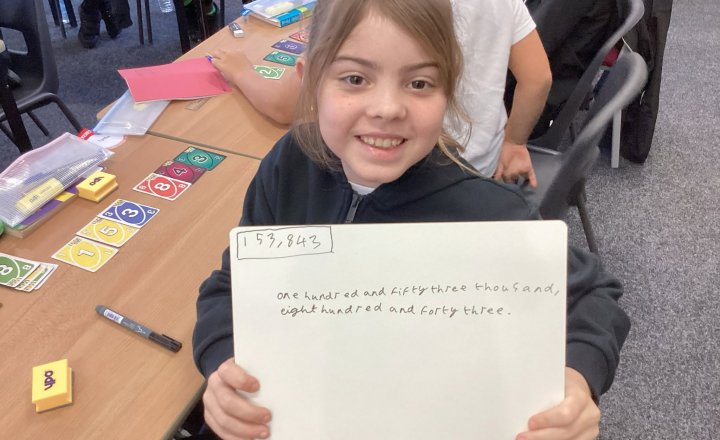 153,843
one hundred and fifty three thousand,
eight hundred and forty three.
8
4
3
1
5
3
8